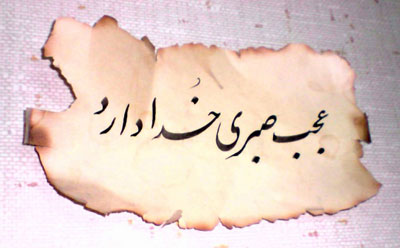 عجب صبری خُدا دارد